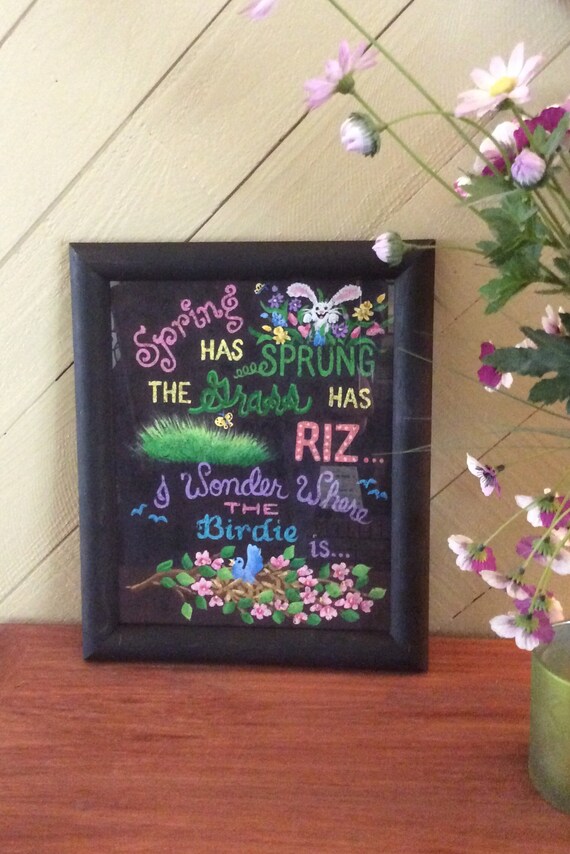 Spring
HAS SPRUNG
THE Grass HAS
RIZ...
I Wonder Where
THE
Birdie
is...